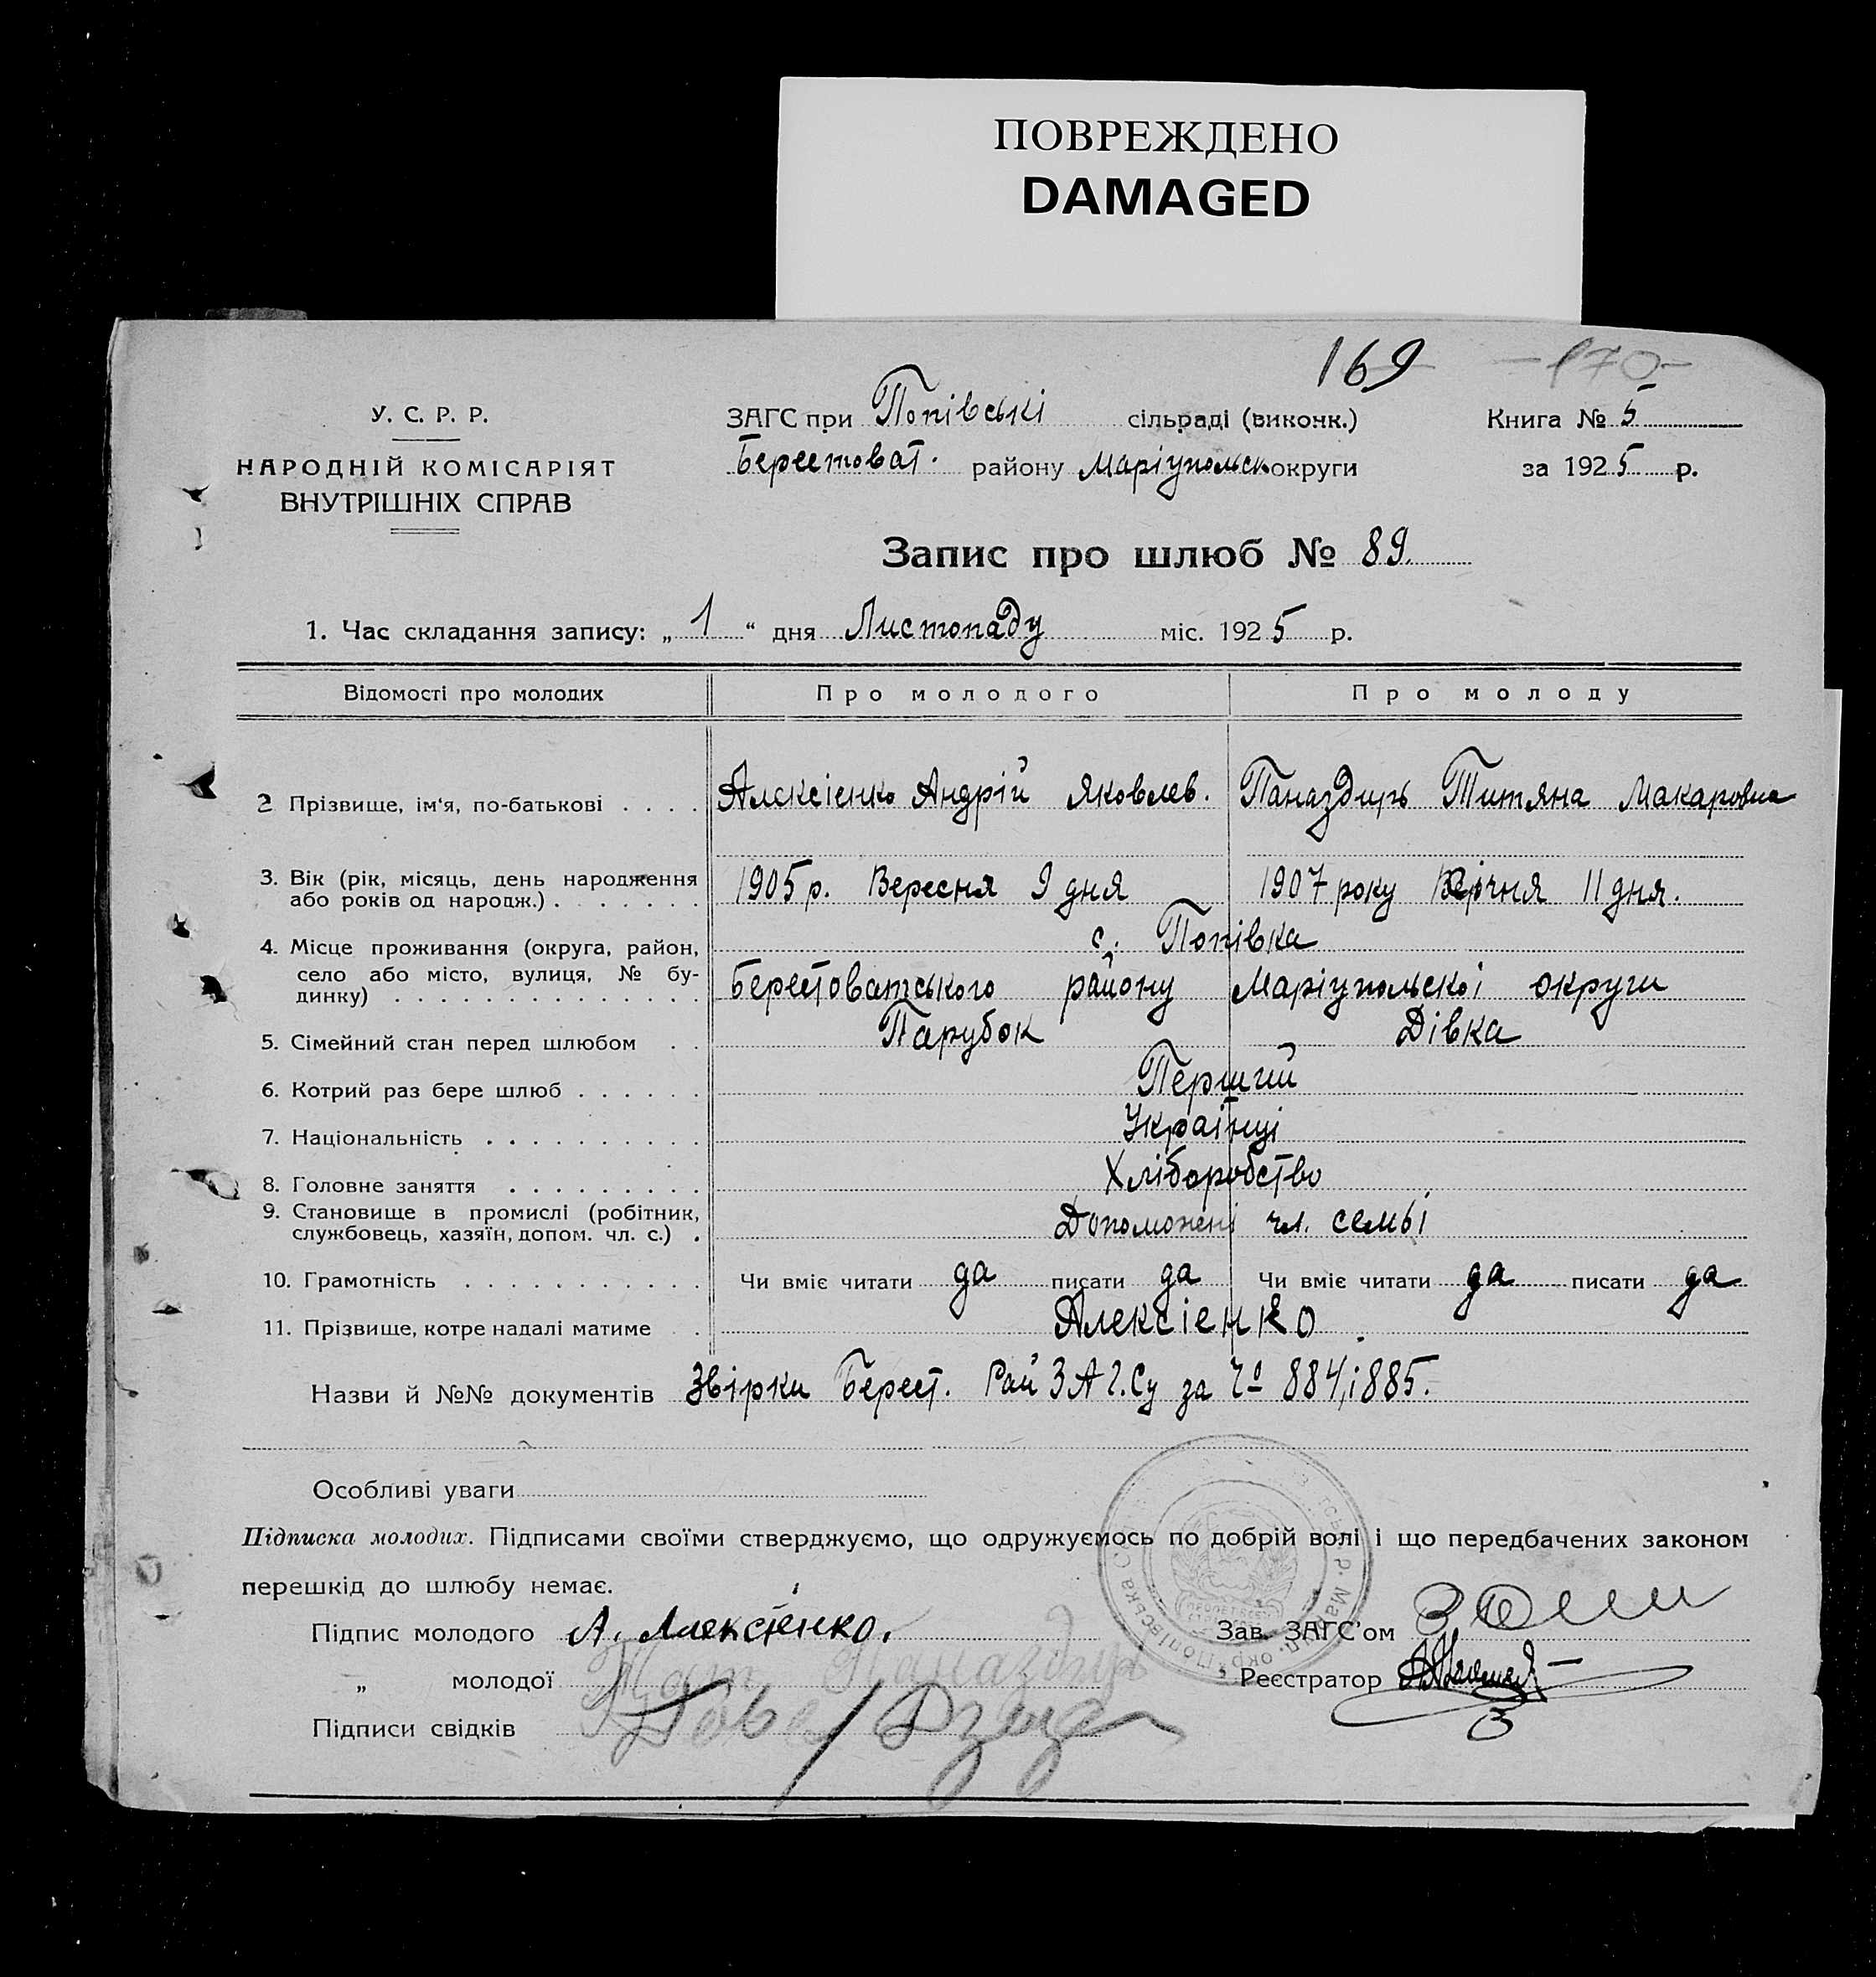 ПОВРЕЖДЕНО
DAMAGED
169 -170-
У. С. Р. Р.
НАРОДНІЙ КОМІСАРІЯТ
ВНУТРІШНІХ СПРАВ
ЗАГС при Попівські сільраді (виконк.)
Берестоват. району Маріупольськ округи
Книга № 5
за 1925 р.
Запис про шлюб № 89.
1. Час складання запису: „ 1 “ дня Листопаду міс. 1925 р.
Відомості про молодих Про молодого Про молоду
2 Прізвище, ім‘я, по-батькові . . . . Алексієнко Андрій Яковлев. Паназдирь Титяна Макаровна
3. Вік (рік, місяць, день народження
або років од народж.) . . . . . . . 1905 р. Вересня 9 дня 1907 року 11 дня.
4. Місце проживання (округа, район, с. Попівка
село або місто, вулиця, № бу-
динку) . . . . . . . . . . . . . . Берестоватського району Маріупольскоі округи
5. Сімейний стан перед шлюбом . . Парубок Дівка
6. Котрий раз бере шлюб . . . . . . Перший
7. Національність . . . . . . . . . . Українці
8. Головне заняття . . . . . . . . . Хліборобство
9. Становище в промислі (робітник,
службовець, хазяїн, допом. чл. с.) . Допоможені чл. семьі
10. Грамотність . . . . . . . . . . . Чи вміє читати да писати да Чи вміє читати да писати да
11. Прізвище, котре надалі матиме . . Алексіенко.
Назви й №№ документів Звірки Берест. Рай ЗАГ.Су за № 884 і 885.
Особливі уваги
Підписка молодих. Підписами своїми стверджуємо, що одружуємось по добрій волі і що передбачених законом
перешкід до шлюбу немає.
Підпис молодого А. Алексієнко. Зав. ЗАГС’ом
„ молодої Реєстратор
Підписи свідків